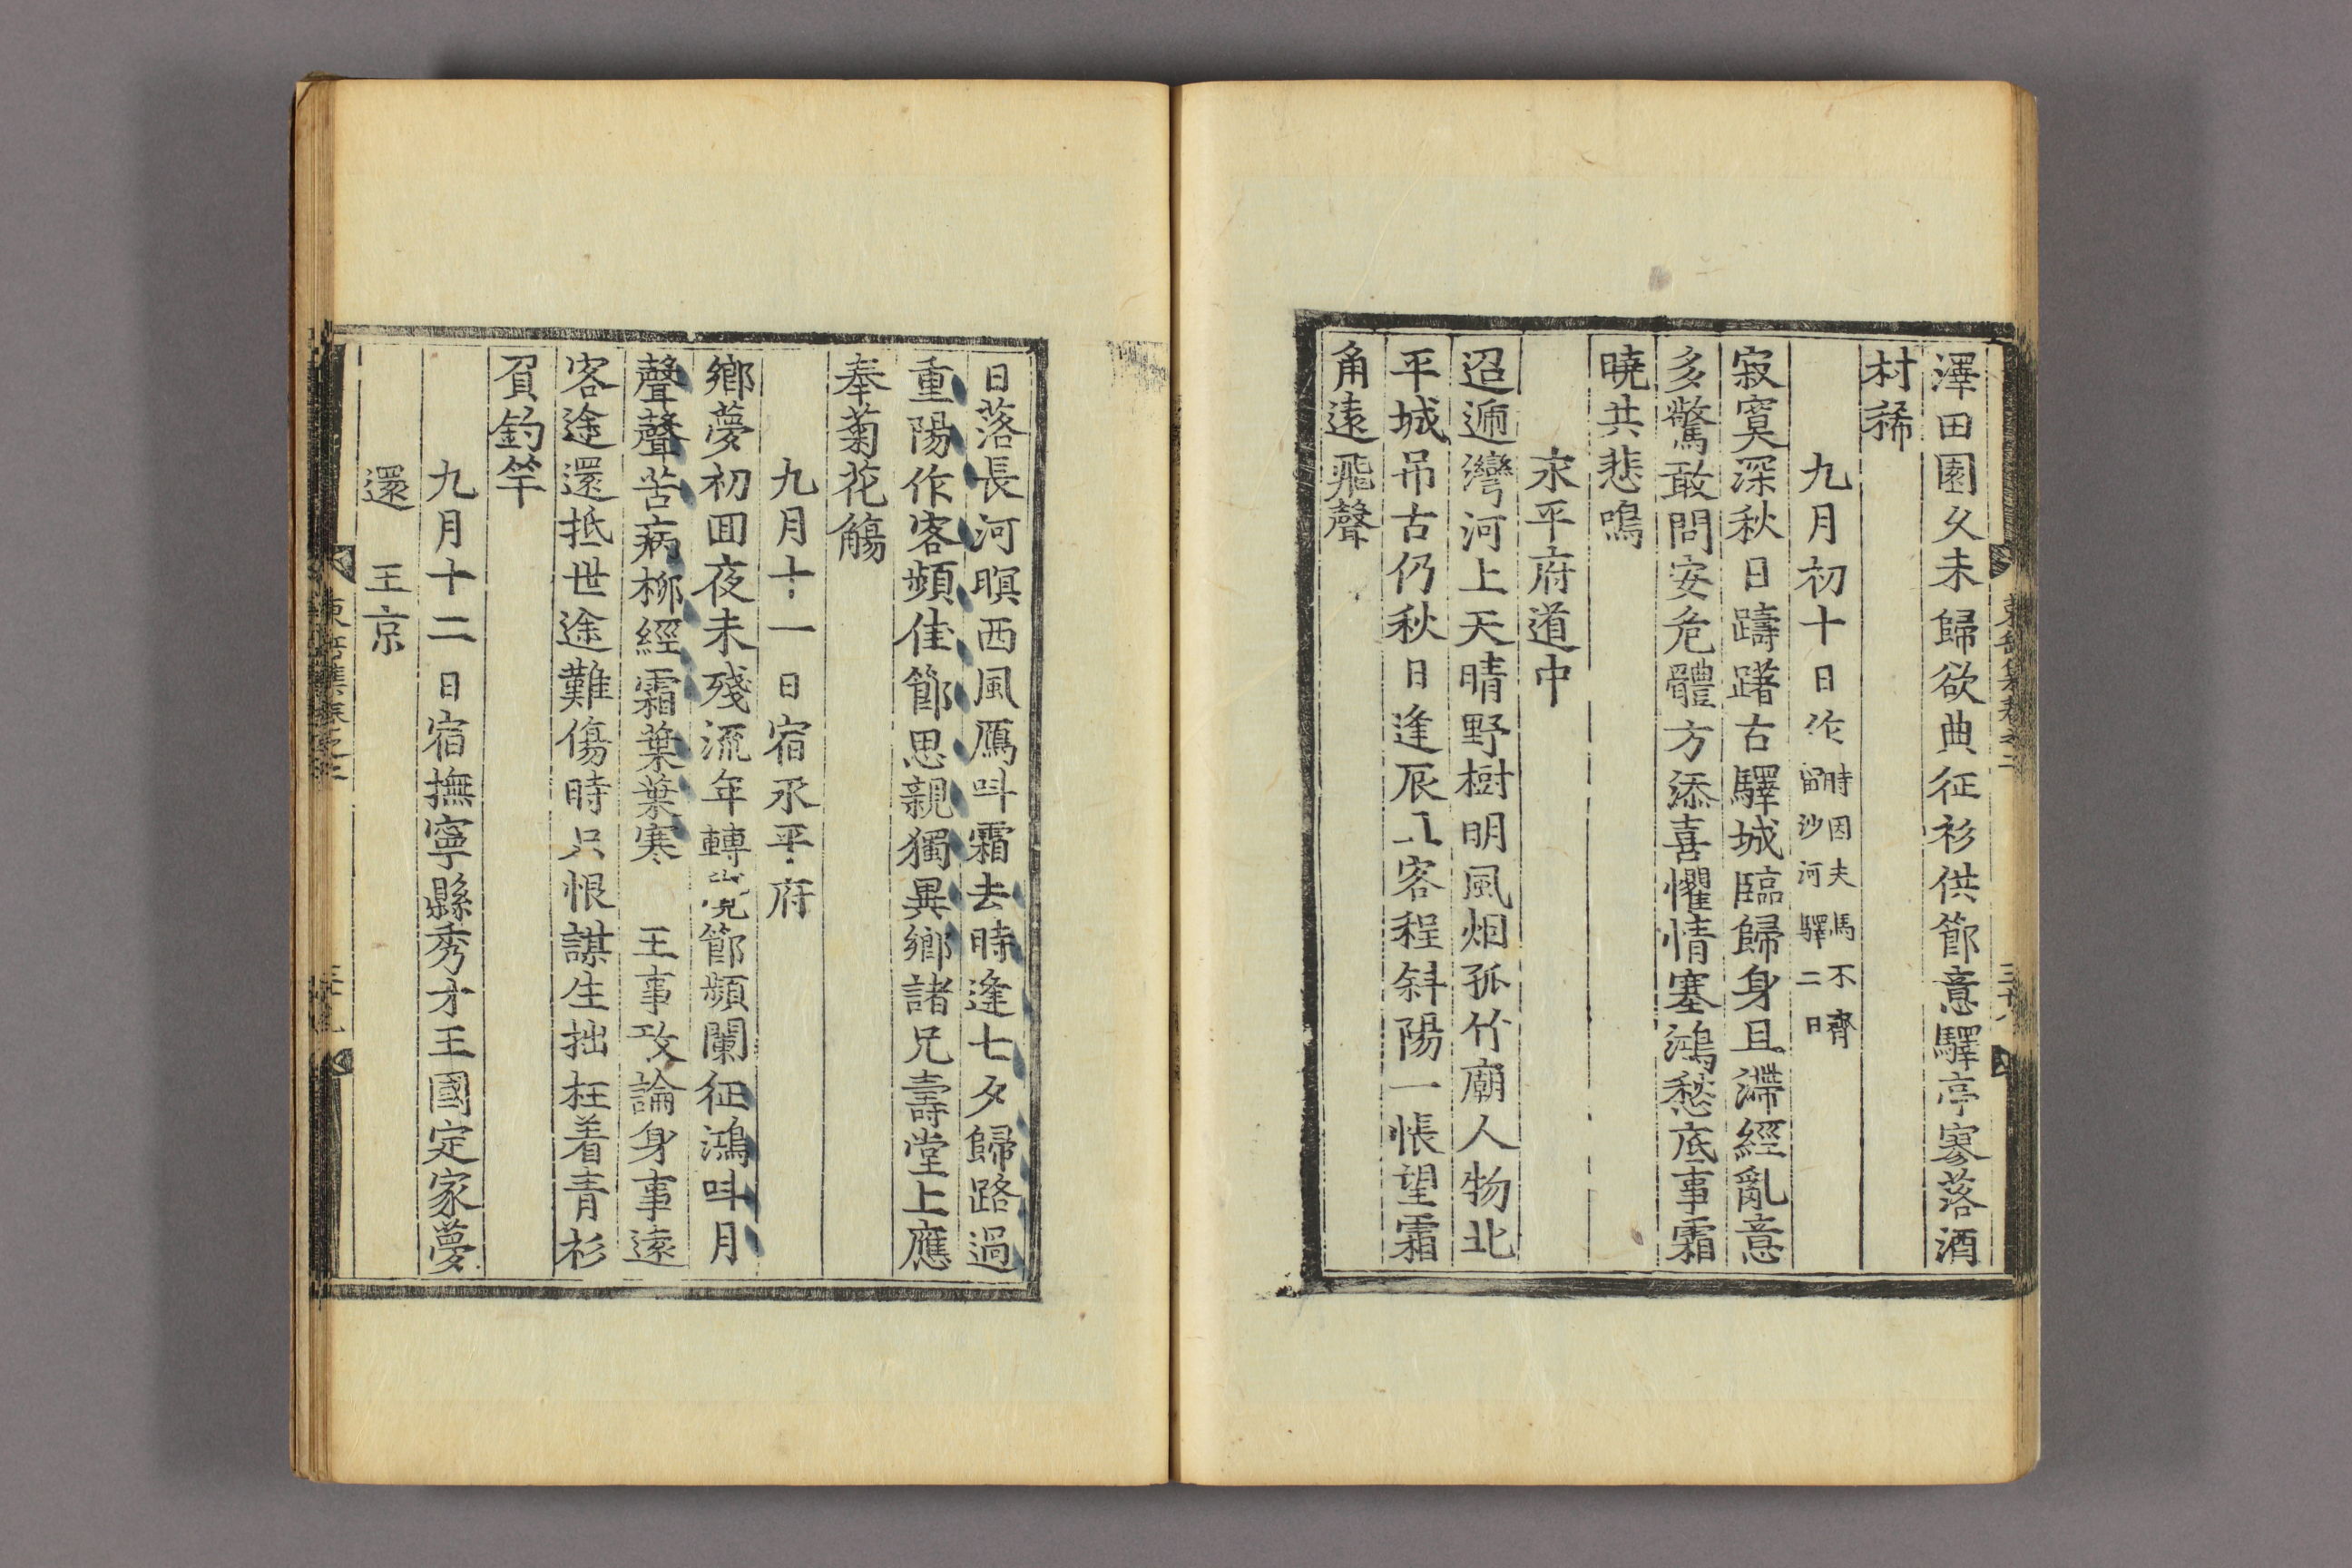 澤田園久未歸欲典征衫供節意驛亭寥落酒
村稀
九月初十日作 時因夫馬不齊留沙河驛二日
寂寞深秋日躊躇古驛城臨歸身且滯經亂意
多驚敢問安危體方添喜懼情塞鴻愁底事霜
曉共悲鳴
永平府道中
迢遞灣河上天晴野樹明風烟孤竹廟人物北
平城吊古仍秋日逢辰 客程斜陽一悵望霜
角遠飛聲
日落長河暝西風鴈呌霜去時逢七夕歸路過
重陽作客頻佳節思親獨異鄉諸兄壽堂上應
奉菊花觴
九月十一日宿永平府
鄉夢初回夜未殘流年轉 節頻闌征鴻呌月
聲聲苦病柳經霜葉葉寒 王事攷論身事遠
客途還抵世途難傷時只恨謀生拙枉着青衫
負釣竿
九月十二日宿撫寧縣秀才王國定家夢
還 王京